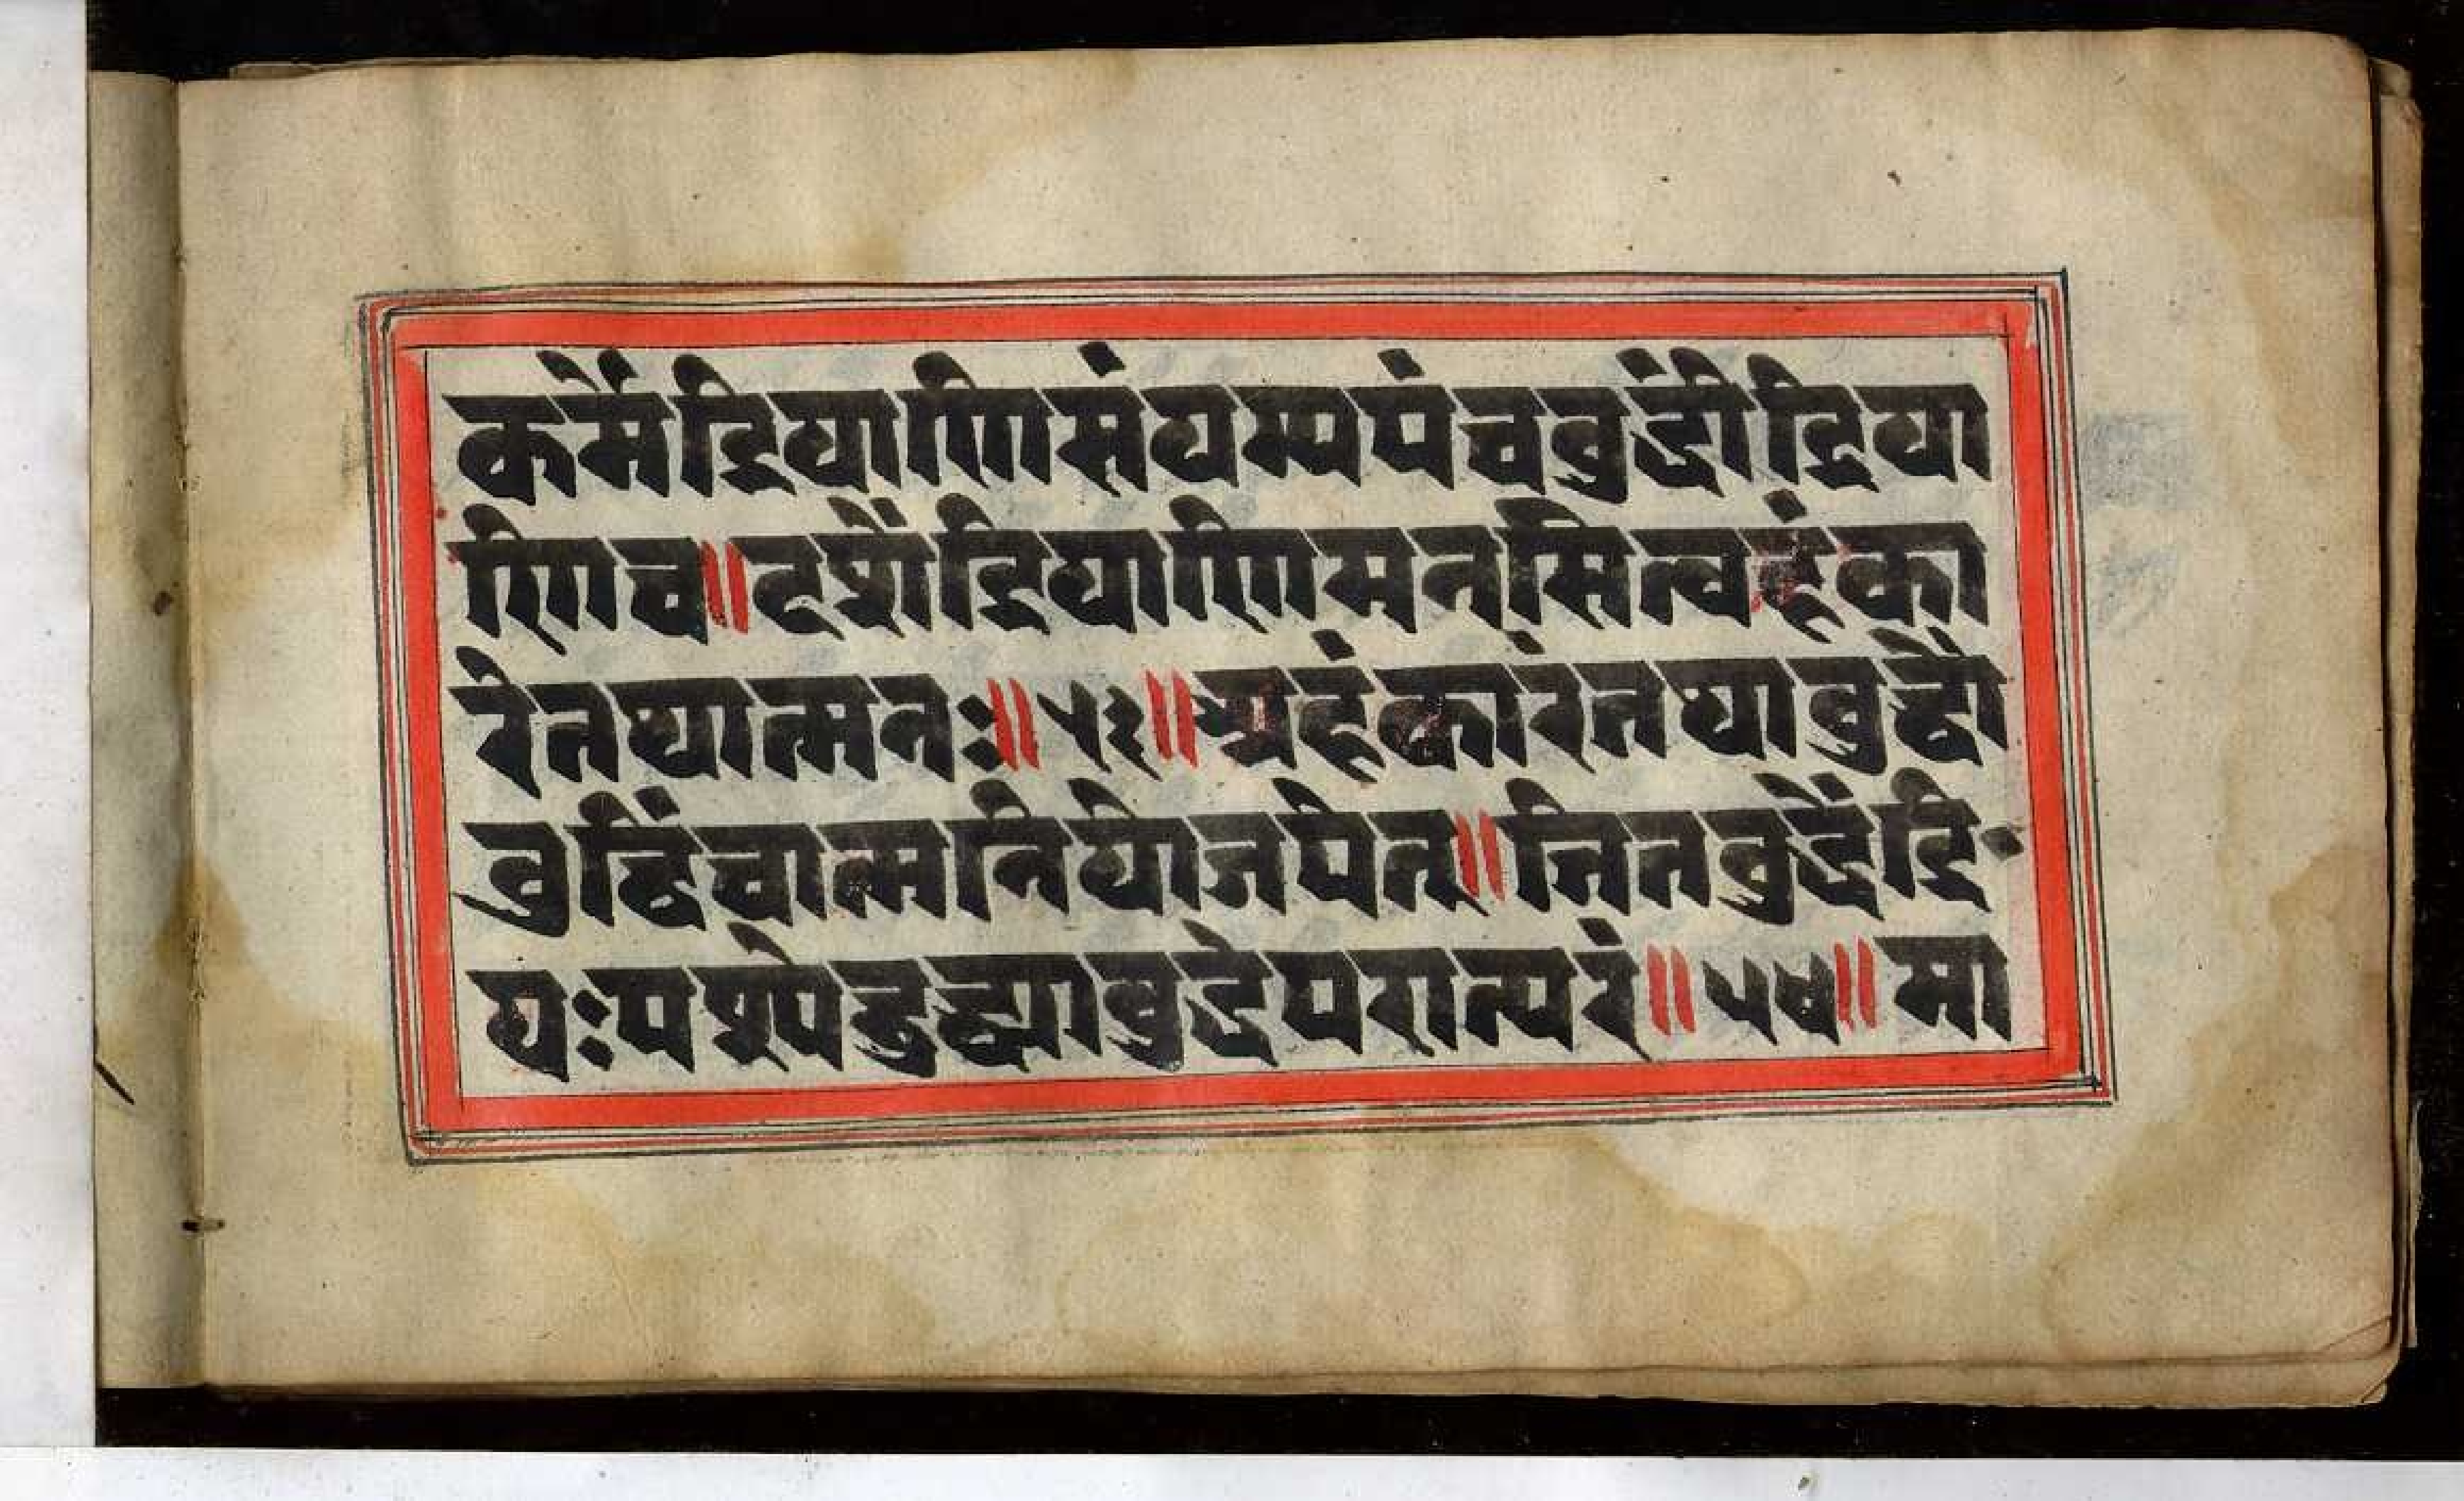 कर्मेंद्रियाणिसंयम्यपंचबुद्धींद्रिया
णिच॥दशेंद्रियाणिमनसित्वहंका
रेतथात्मनः॥५३॥अहंकारंतथाबुद्धौ
बुद्धिंचात्मनियोजयेत॥जितबुद्धेंद्रि
यःपश्येद्बुद्ध्याबुद्धेपरात्परं॥५४॥मा